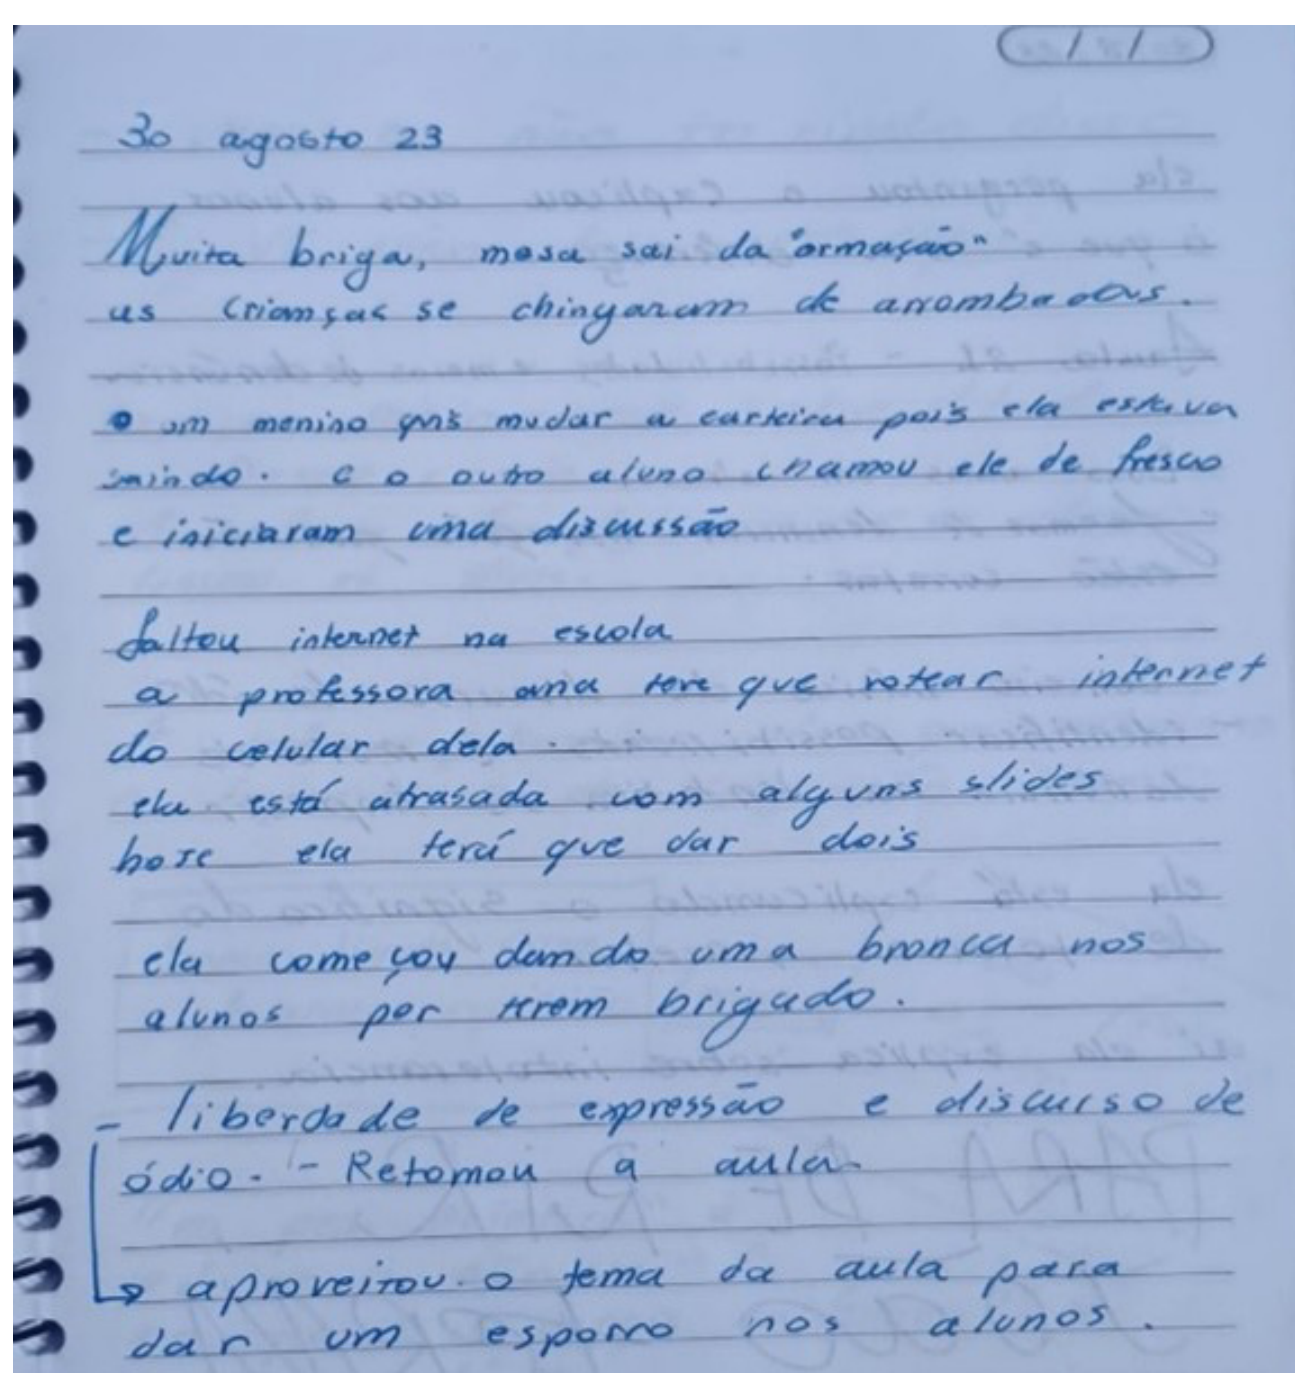 30 agosto 23
Muita briga, mesa sai da "ormação"
as crianças se chingaram de arrombados.
um menino quis mudar a carteira pois ela estava
saindo. e o outro aluno chamou ele de fresco
e iniciaram uma discussão
faltou internet na escola
a professora ana teve que rotear internet
do celular dela.
ela está atrasada com alguns slides
hoje ela terá que dar dois
ela começou dando uma bronca nos
alunos por terem brigado.
- liberdade de expressão e discurso de
ódio. - Retomou a aula.
↳ aproveitou o tema da aula para
dar um esporro nos alunos.